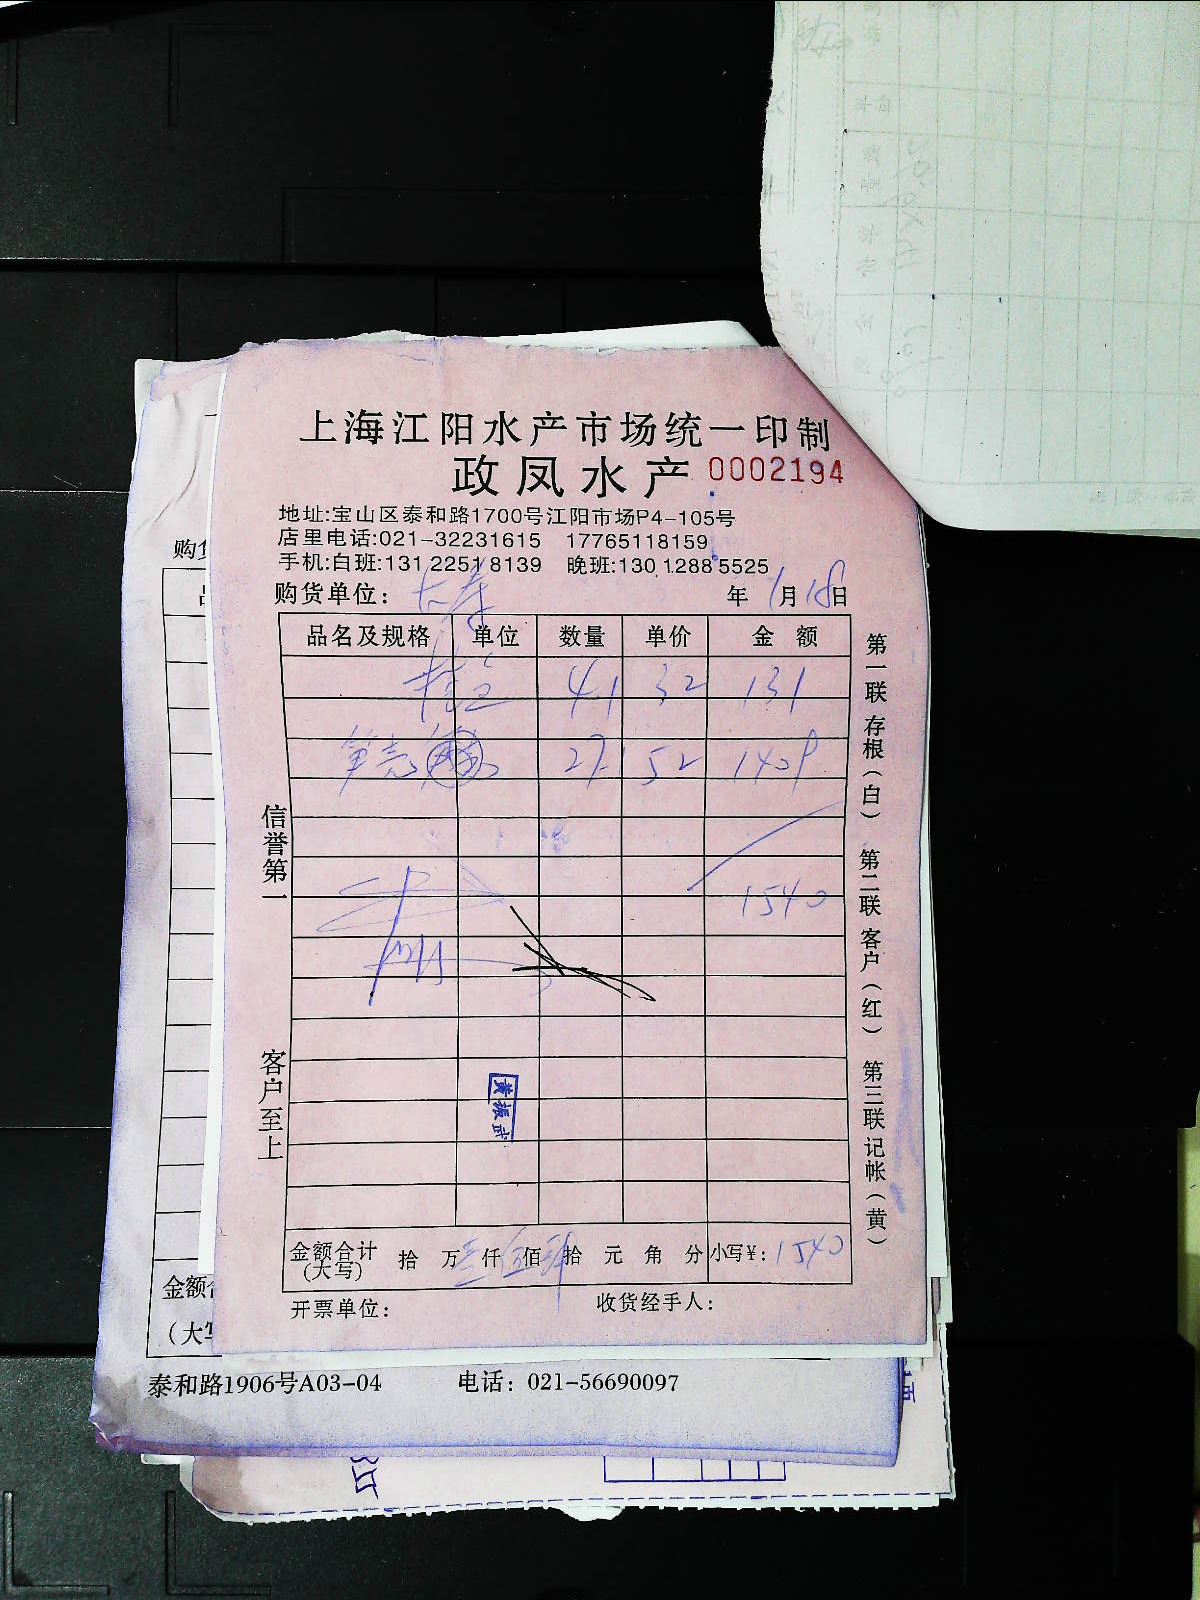 上海江阳水产市场统一印制
政凤水产 0002194
地址:宝山区泰和路1700号江阳市场P4-105号
店里电话:021-32231615 17765118159
手机:白班:131 2251 8139 晚班:130 1288 5525
购货单位: 年 1月18日
品名及规格 单位 数量 单价 金额
4.1 32 131
笋壳 27.1 52 1409
1540
信誉第一
客户至上
黄振武
第一联 存根(白) 第二联 客户(红) 第三联 记帐(黄)
金额合计(大写) 拾 万 仟 伍 佰 肆 拾 元 角 分 小写¥: 1540
开票单位: 收货经手人:
购货
金额合
(大写
泰和路1906号A03-04 电话: 021-56690097